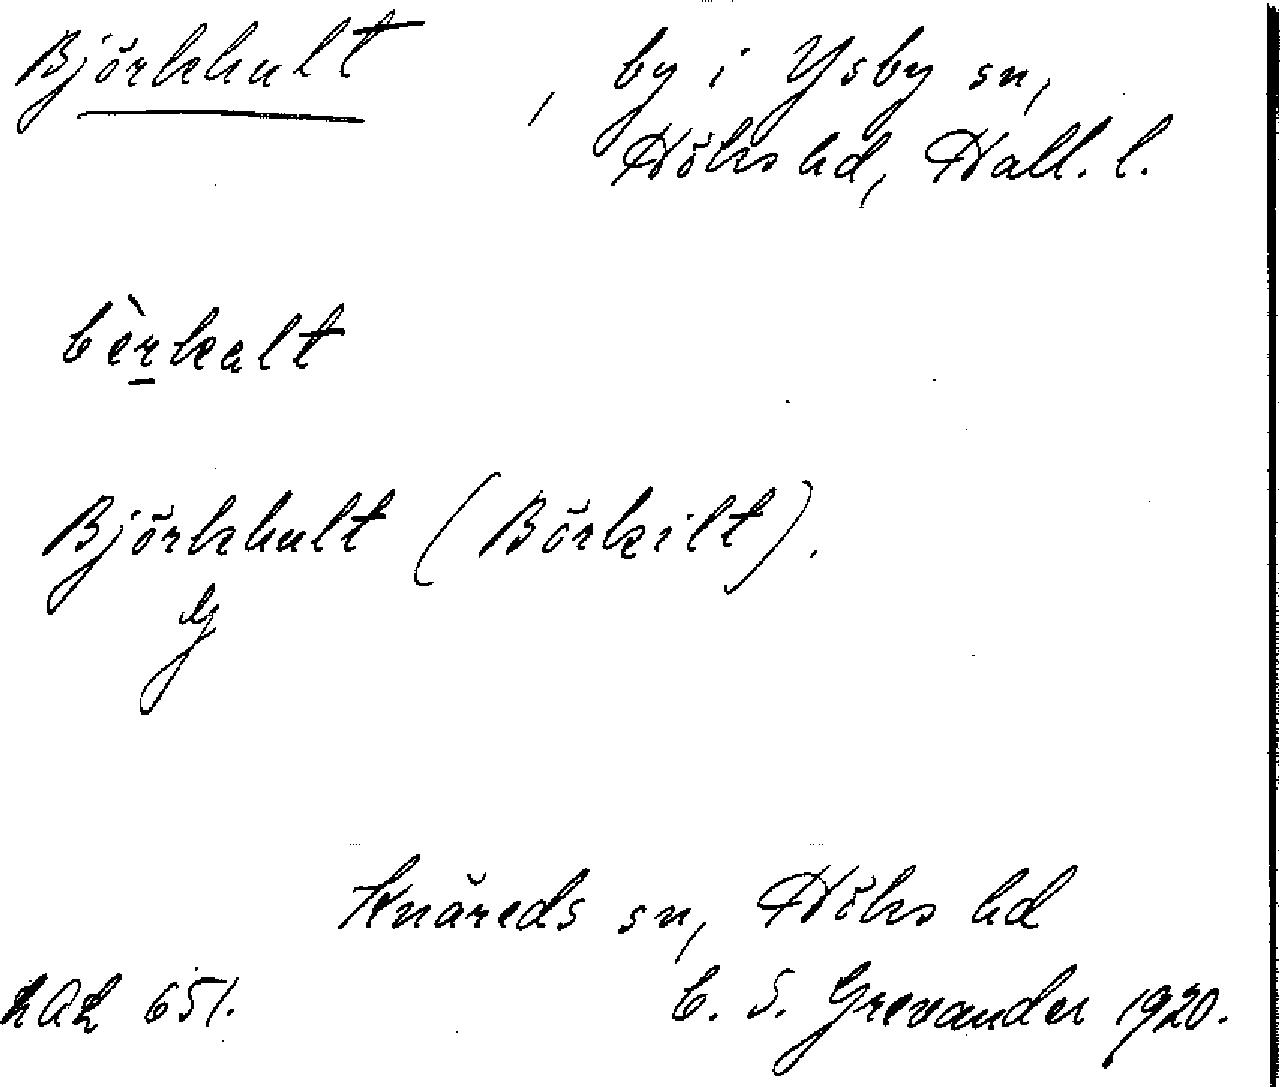 Björkhult, by i Ysby sn,
Höks hd, Hall. l.
bèrkalt
Björkhult (Börkilt).
Knäreds sn, Höks hd
LAL 651. C. S. Grevander 1920.